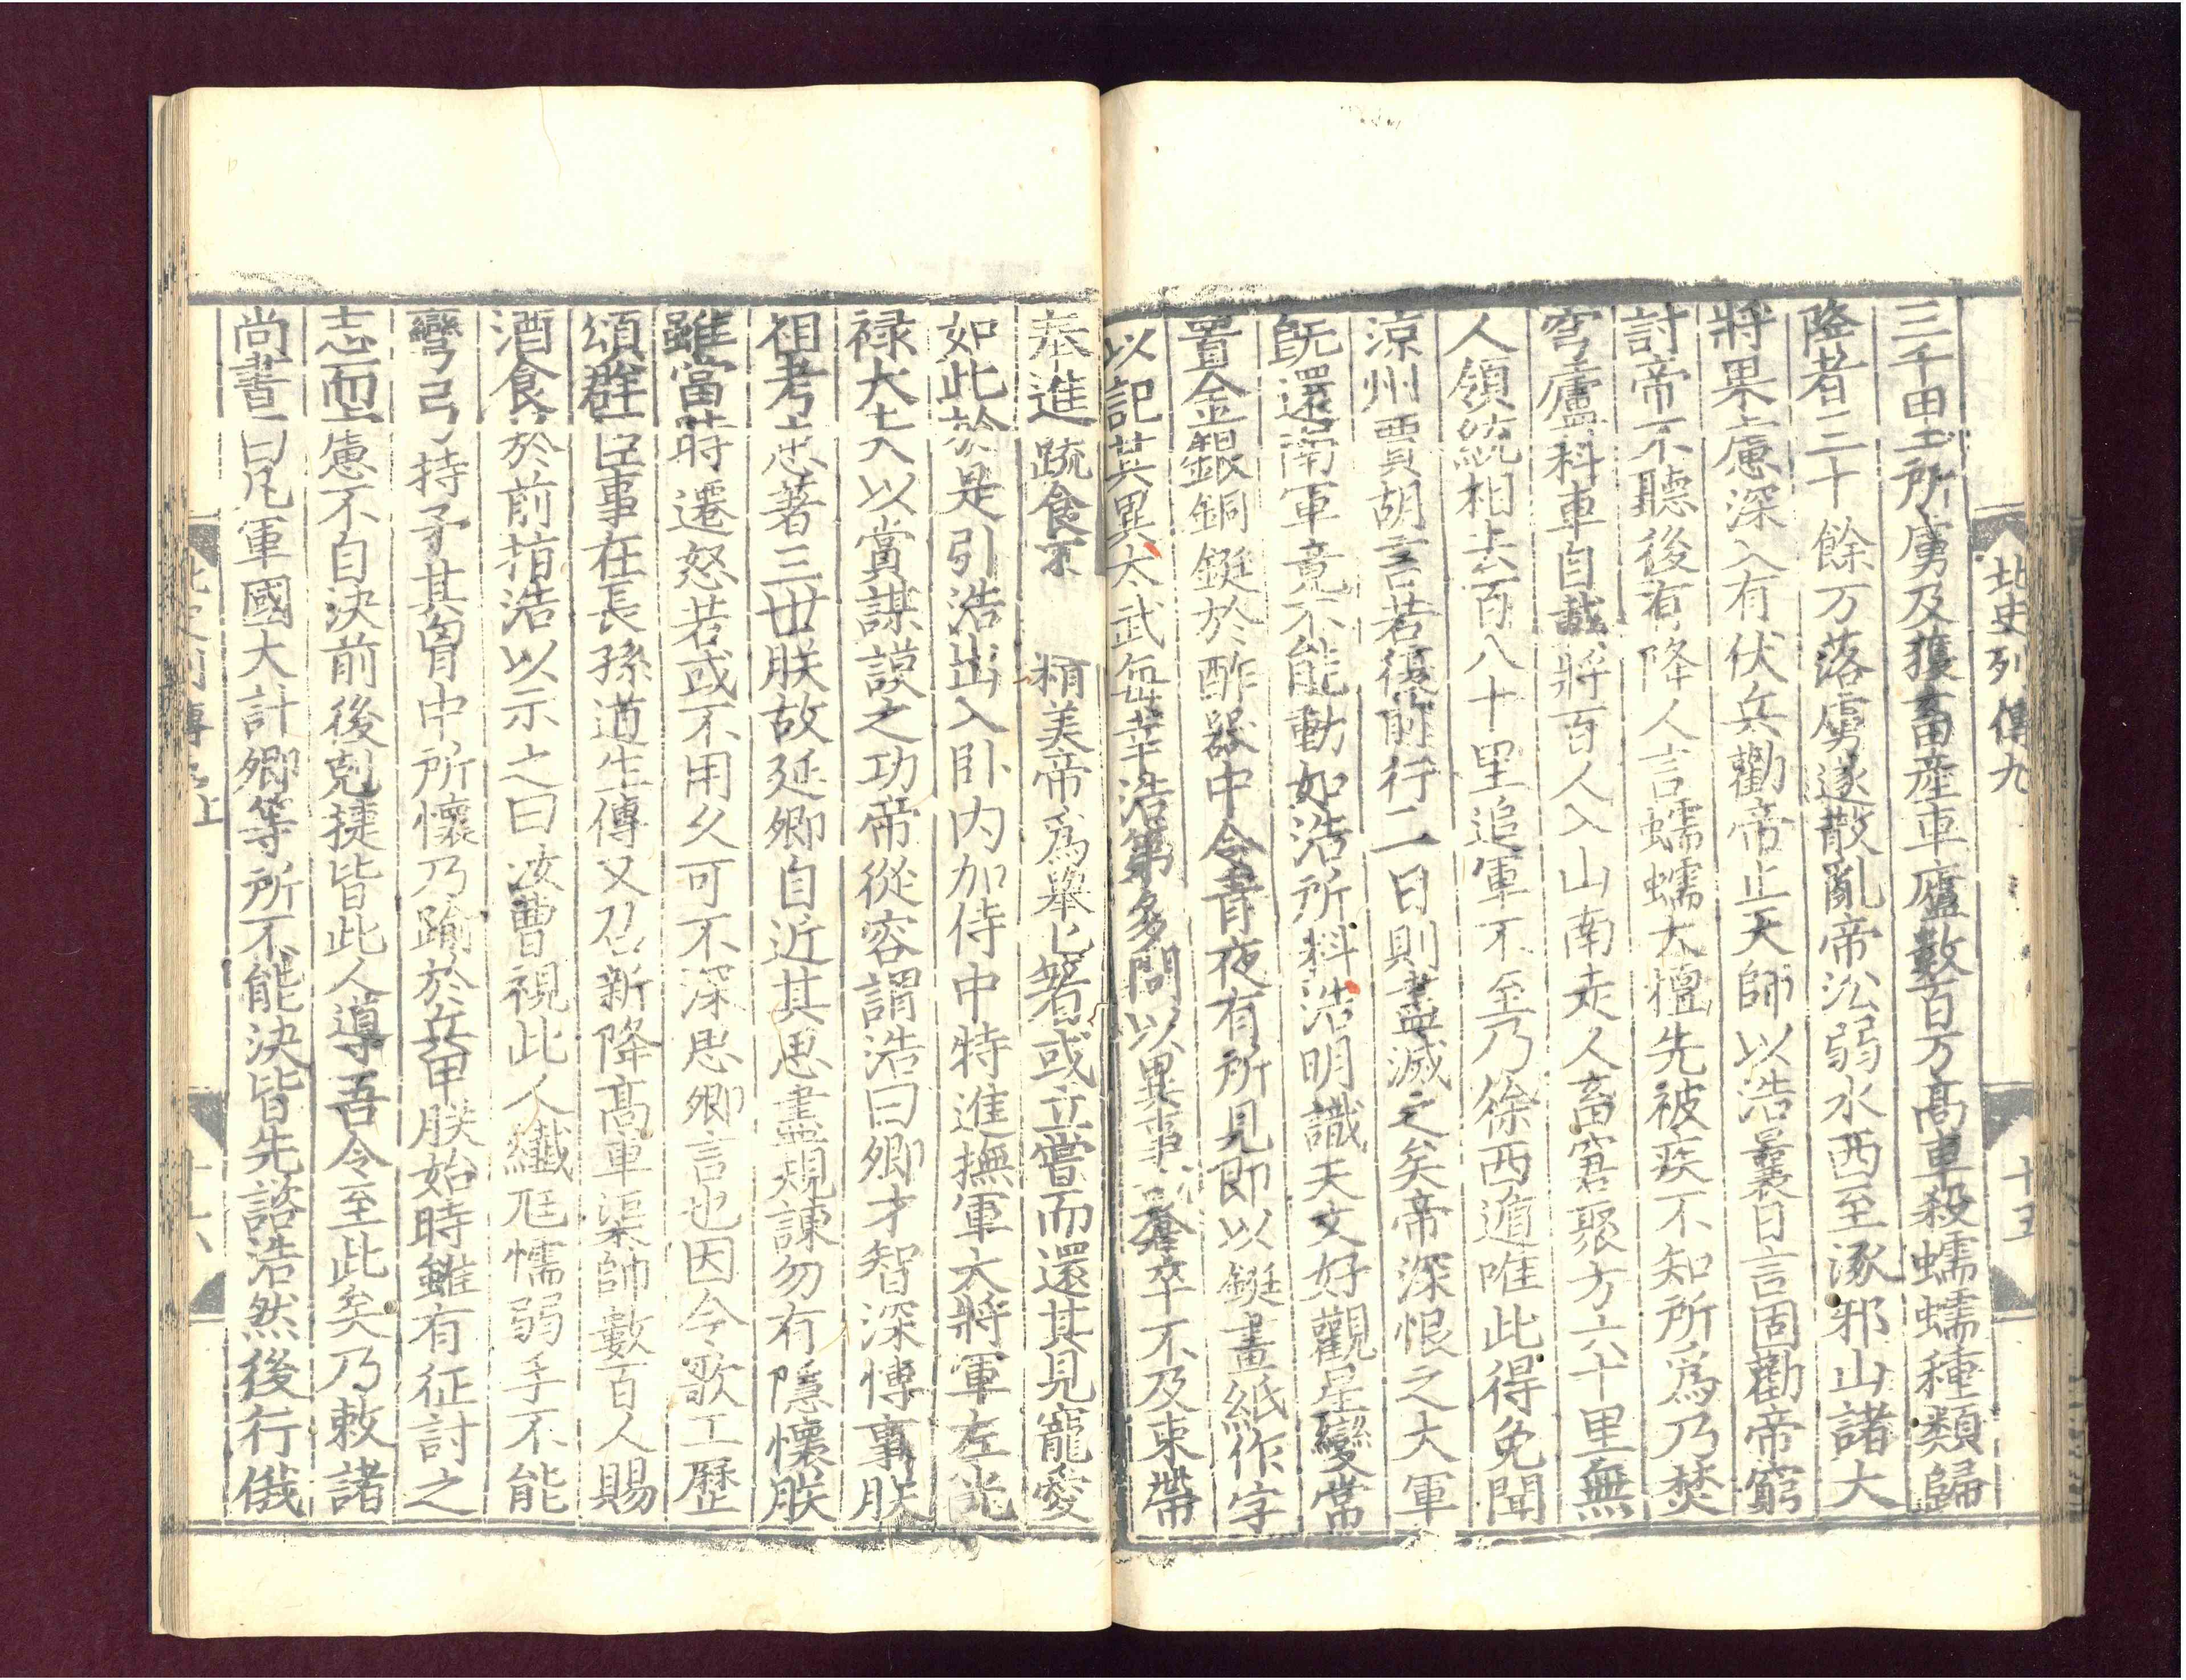 北史列傳九
十五
三千里所虜及獲畜産車廬數百万髙車殺蠕蠕種類歸
降者三十餘万落虜遂散亂帝㳂弱水西至涿邪山諸大
將果慮深入有伏兵勸帝止天師以浩曩日言固勸帝窮
討帝不聽後有降人言蠕蠕大檀先被疾不知所爲乃焚
穹廬科車自載將百人入山南走人畜窘聚方六十里無
人領統相去百八十里追軍不至乃徐西遁唯此得免聞
涼州賈胡言若復前行二日則盡滅之矣帝深恨之大軍
既還南軍竟不能動如浩所料浩明識天文好觀星變常
置金銀銅鋌於酢器中令青夜有所見即以鋌畫紙作字
以記其異太武每幸浩第多問以異事或倉卒不及束帶
奉進蔬食不 精美帝爲舉匕箸或立嘗而還其見寵愛
如此於是引浩出入卧内加侍中特進撫軍大將軍左光
禄大夫以賞謀謨之功帝從容謂浩曰卿才智深博事朕
祖考忠著三世朕故延卿自近其思盡規諌勿有隱懷朕
雖當時遷怒若或不用久可不深思卿言也因令歌工歷
頌群臣事在長孫道生傳又召新降髙車渠帥數百人賜
酒食於前指浩以示之曰汝曹視此人纖尫懦弱手不能
彎弓持矛其胷中所懷乃踰於兵甲朕始時雖有征討之
志而慮不自決前後剋捷皆此人導吾令至此矣乃敕諸
尚書曰凡軍國大計卿等所不能決皆先諮浩然後行俄
十六